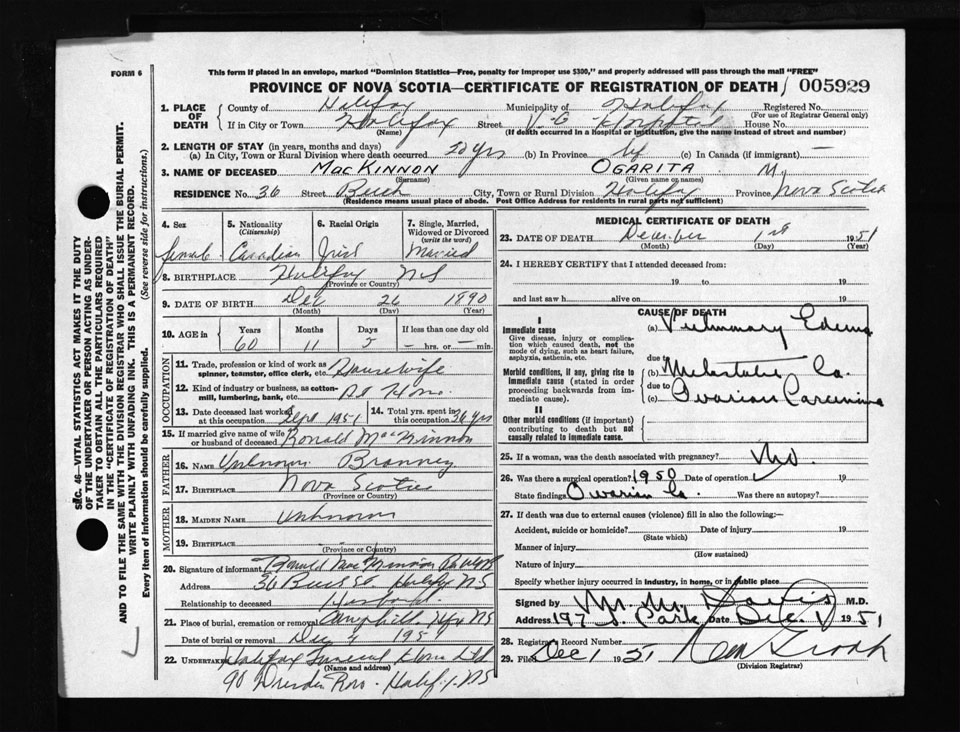 FORM 6
This form if placed in an envelope, marked "Dominion Statistics—Free, penalty for improper use $300," and properly addressed will pass through the mail "FREE"
PROVINCE OF NOVA SCOTIA—CERTIFICATE OF REGISTRATION OF DEATH 005929
1. PLACE OF DEATH
County of Halifax Municipality of Halifax Registered No.
(For use of Registrar General only)
If in City or Town Halifax Street V.G. Hospital House No.
(Name) (If death occurred in a Hospital or Institution, give the name instead of street and number)
2. LENGTH OF STAY (in years, months and days)
(a) In City, Town or Rural Division where death occurred 20 yrs (b) In Province (c) In Canada (if immigrant) —
3. NAME OF DECEASED MACKINNON OGARITA M.
(Surname) (Given name or names)
RESIDENCE No. 36 Street City, Town or Rural Division Halifax Province Nova Scotia
(Residence means usual place of abode. Post Office Address for residents in rural parts not sufficient)
4. Sex 5. Nationality (Citizenship) 6. Racial Origin 7. Single, Married, Widowed or Divorced (write the word)
Female Canadian Irish Married
8. BIRTHPLACE Halifax NS
(Province or Country)
9. DATE OF BIRTH Dec 26 1890
(Month) (Day) (Year)
10. AGE in Years Months Days If less than one day old
60 11 5 — hrs. or — min.
11. Trade, profession or kind of work as spinner, teamster, office clerk, etc. Housewife
12. Kind of industry or business, as cotton-mill, lumbering, bank, etc. At Home
13. Date deceased last worked at this occupation Sept 1951 14. Total yrs. spent in this occupation 36 yrs
15. If married give name of wife or husband of deceased Ronald MacKinnon
FATHER
16. NAME Unknown Branney
17. BIRTHPLACE Nova Scotia
(Province or Country)
MOTHER
18. MAIDEN NAME Unknown
19. BIRTHPLACE
(Province or Country)
20. Signature of informant Ronald MacKinnon
Address 36 St Halifax NS
Relationship to deceased Husband
21. Place of burial, cremation or removal Hfx NS
Date of burial or removal Dec 1951
22. Undertaker Halifax Funeral Home Ltd
(Name and address)
90 Dresden Row - Halifax NS
MEDICAL CERTIFICATE OF DEATH
23. DATE OF DEATH December 1st 1951
(Month) (Day) (Year)
24. I HEREBY CERTIFY that I attended deceased from:
19 to 19
and last saw h alive on 19
CAUSE OF DEATH
I
Immediate cause
Give disease, injury or complication which caused death, not the mode of dying, such as heart failure, asphyxia, asthenia, etc.
(a) Pulmonary Edema
due to
Morbid conditions, if any, giving rise to immediate cause (stated in order proceeding backwards from immediate cause).
(b) Metastatic Ca.
due to
(c) Ovarian Carcinoma
II
Other morbid conditions (if important) contributing to death but not causally related to immediate cause.
25. If a woman, was the death associated with pregnancy? No.
26. Was there a surgical operation? 1950 Date of operation 19
State findings Ovarian Ca. Was there an autopsy?
27. If death was due to external causes (violence) fill in also the following:—
Accident, suicide or homicide? Date of injury 19
(State which)
Manner of injury
(How sustained)
Nature of injury
Specify whether injury occurred in industry, in home, or in public place
Signed by M.D.
Address 197 Park Date Dec. 1 1951
28. Registrar's Record Number
29. Filed Dec 1 1951
(Division Registrar)
SEC. 46—VITAL STATISTICS ACT MAKES IT THE DUTY
OF THE UNDERTAKER OR PERSON ACTING AS UNDER-
TAKER TO OBTAIN ALL THE PARTICULARS REQUIRED
IN THE "CERTIFICATE OF REGISTRATION OF DEATH"
AND TO FILE THE SAME WITH THE DIVISION REGISTRAR WHO SHALL ISSUE THE BURIAL PERMIT.
WRITE PLAINLY WITH UNFADING INK. THIS IS A PERMANENT RECORD.
Every item of information should be carefully supplied. (See reverse side for instructions.)